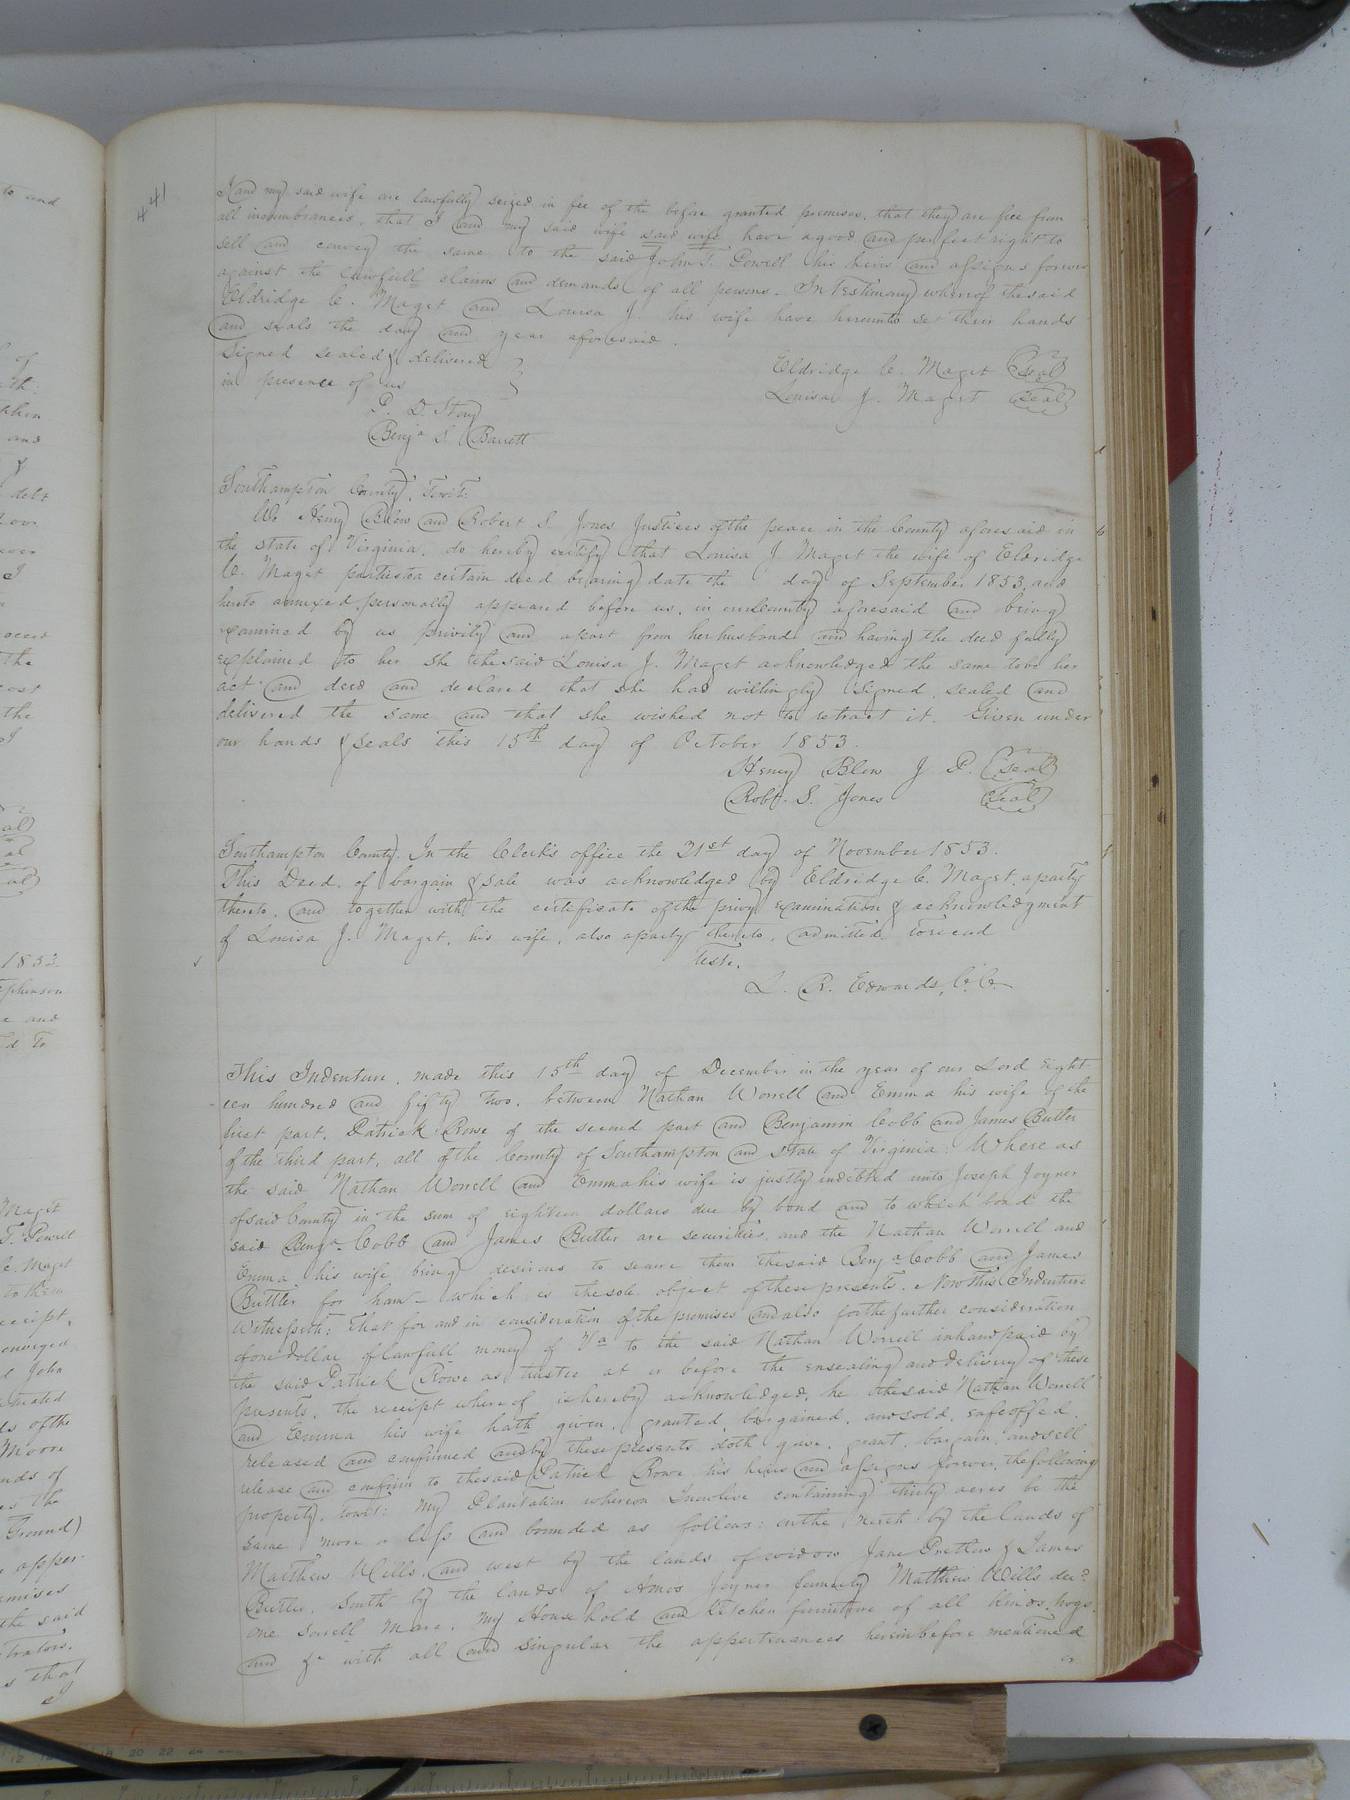 441
I and my said wife are lawfully seized in fee of the before granted premises, that they are free from
all incumbrances, that I and my said wife said wife have a good and perfect right to
sell and convey the same to the said John T. Powell his heirs and assigns forever
against the lawfull claims and demands of all persons. In Testimony whereof the said
Eldridge C. Maget and Louisa J. his wife have hereunto set their hands
and seals the day and year aforesaid.
Signed sealed & delivered
in presence of us
Eldridge C. Maget Seal
Louisa J. Maget Seal
P. D. Story
Benja S. Barrett
Southampton County, Towit:
We Henry Blow and Robert S. Jones Justices of the peace in the County aforesaid in
the State of Virginia, do hereby certify that Louisa J. Maget the wife of Eldridge
C. Maget parties to a certain deed bearing date the day of September 1853, and
hereto annexed, personally appeared before us, in our County aforesaid and being
examined by us privily and apart from her husband and having the deed fully
explained to her she the said Louisa J. Maget acknowledged the same to be her
act and deed and declared that she had willingly signed, sealed and
delivered the same and that she wished not to retract it. Given under
our hands & seals this 15th day of October 1853.
Henry Blow J. P. Seal
Robt. S. Jones Seal
Southampton County. In the Clerk's office the 21st day of November 1853.
This Deed, of bargain & sale was acknowledged by Eldridge C. Maget, a party
thereto, and together with the certificate of the privy examination & acknowledgment
of Louisa J. Maget, his wife, also a party thereto, admitted to record
Teste.
L. R. Edwards, C. C.
This Indenture, made this 15th day of December in the year of our Lord eight
een hundred and fifty two, between Nathan Worrell and Emma his wife of the
first part, Patrick Rowe of the second part and Benjamin Cobb and James Butler
of the third part, all of the County of Southampton and State of Virginia: Where as
the said Nathan Worrell and Emma his wife is justly indebted unto Joseph Joyner
of said County in the sum of eighteen dollars due by bond and to which bond the
said Benja. Cobb and James Butler are securities, and the Nathan Worrell and
Emma his wife being desirous to secure them the said Benja Cobb and James
Buttler for ham— which is the sole object of these presents. Now This Indenture
Witnesseth: That for and in consideration of the premises and also for the further consideration
of one dollar of lawfull money of Va to the said Nathan Worrell in hand paid by
the said Patrick Rowe as trustee at or before the ensealing and delivery of these
presents, the receipt where of is hereby acknowledged, he the said Nathan Worrell
and Emma his wife hath given, granted, bargained, and sold,
released and confirmed and by these presents doth gave, grant, bargain, and sell
release and confirm to the said Patrick Rowe his heirs and assigns forever, the following
property, towit: My Plantation whereon I now live containing thirty acres be the
same more or less and bounded as follows: on the north by the lands of
Matthew Wills, and west by the lands of widow Jane Pretlow & James
Butler, South by the lands of Amos Joyner formerly Matthew Wills decd.
one Sorrell Mare, My House hold and kitchen furniture of all kinds, hogs
and &c with all and singular the appertinances herein before mentioned
or